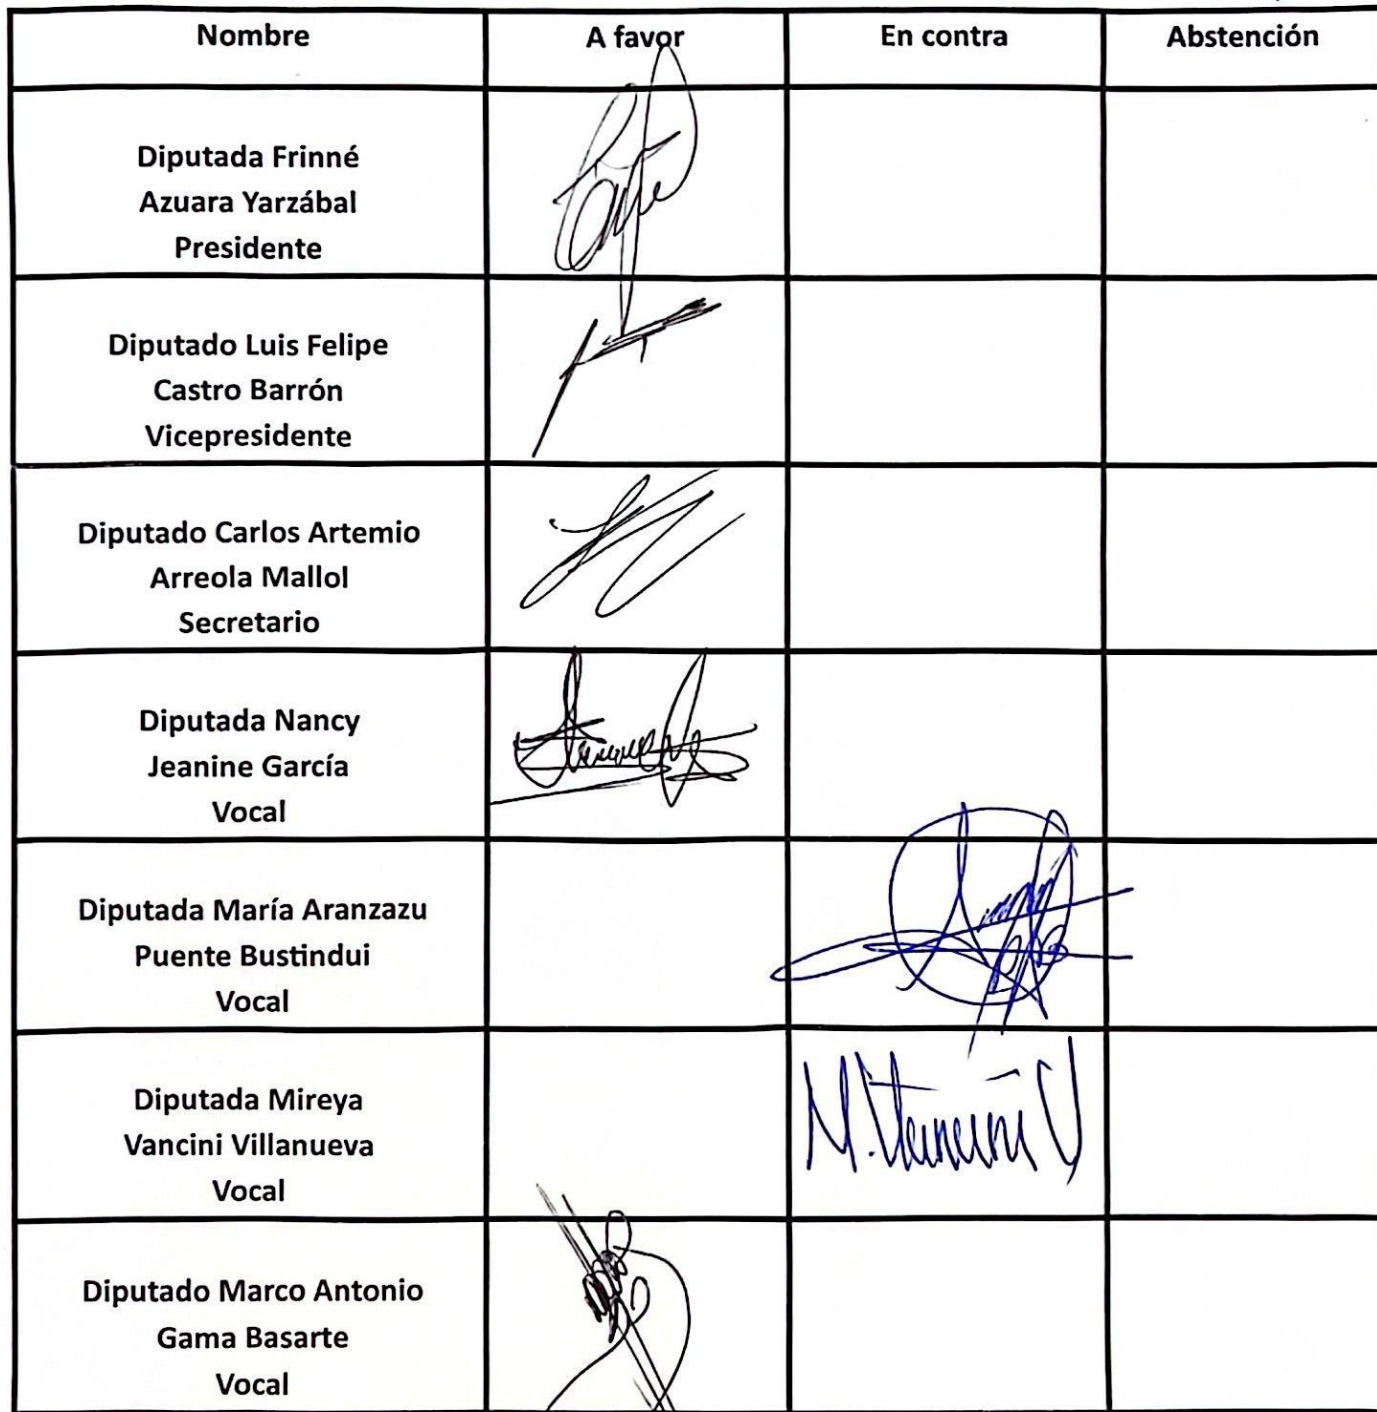 Nombre A favor En contra Abstención
Diputada Frinné
Azuara Yarzábal
Presidente
Diputado Luis Felipe
Castro Barrón
Vicepresidente
Diputado Carlos Artemio
Arreola Mallol
Secretario
Diputada Nancy
Jeanine García
Vocal
Diputada María Aranzazu
Puente Bustindui
Vocal
Diputada Mireya
Vancini Villanueva
Vocal
M. Vancini V
Diputado Marco Antonio
Gama Basarte
Vocal